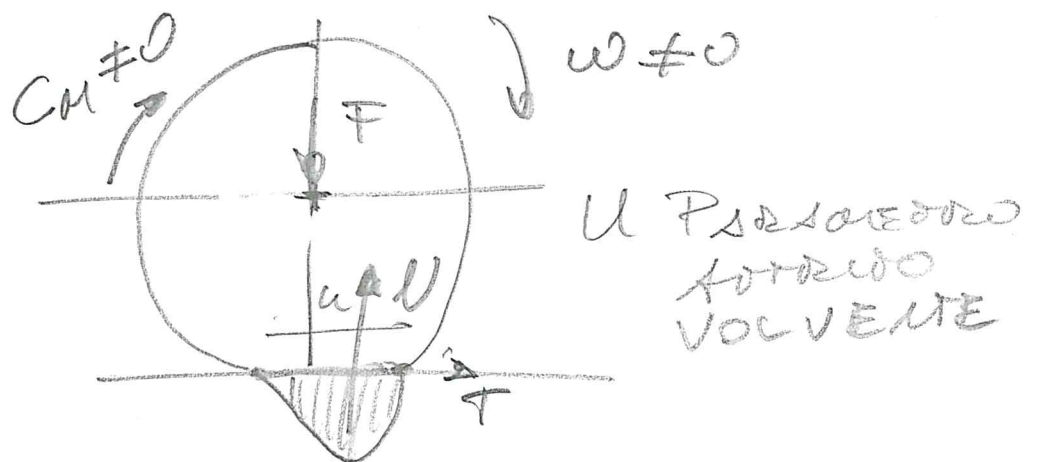 CM≠0
ω≠0
F
U PARAMETRO
ATTRITO
VOLVENTE
u N
T